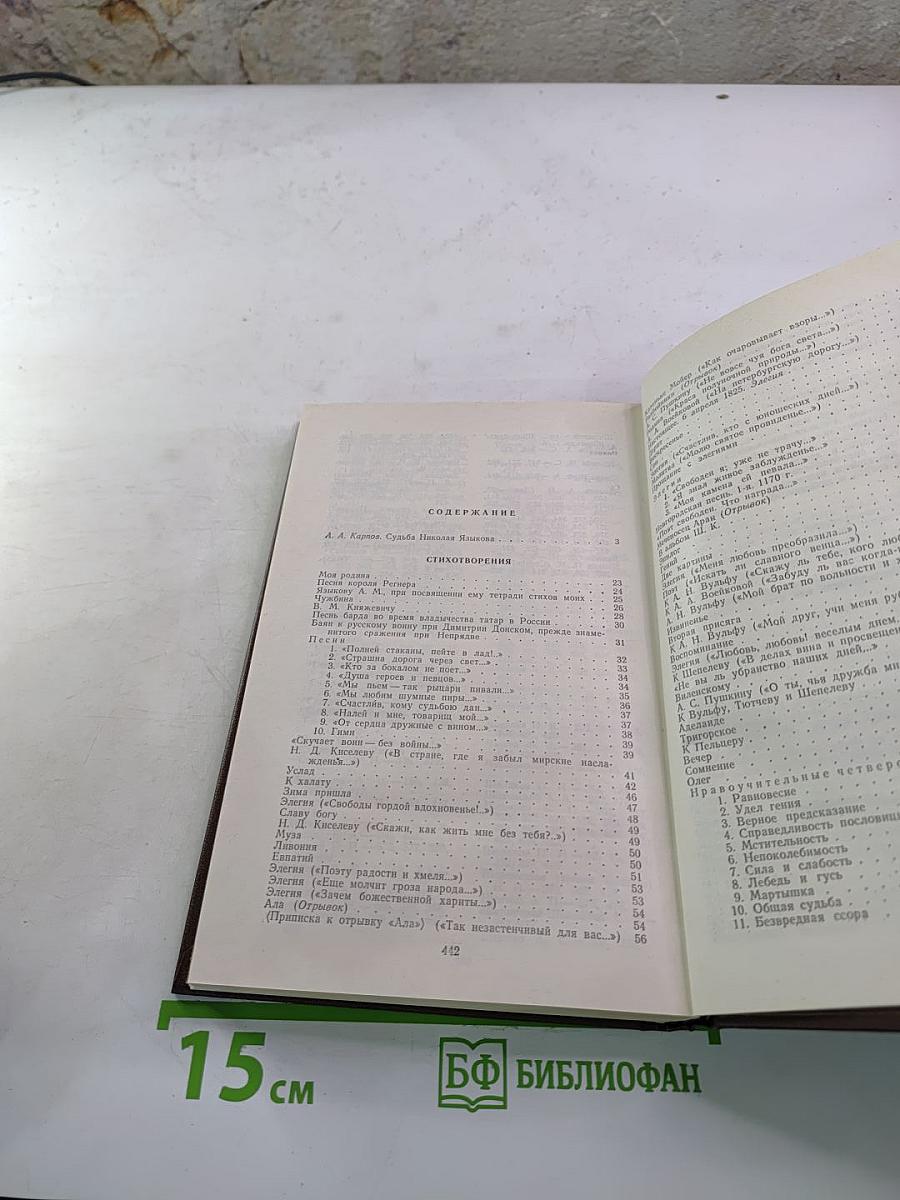 СОДЕРЖАНИЕ
А. А. Карпов. Судьба Николая Языкова . . . . . . . . . . 3
СТИХОТВОРЕНИЯ
Моя родина . . . . . . . . . . 23
Песня короля Регнера . . . . . . . . . . 24
Языкову А. М., при посвящении ему тетради стихов моих . . 25
Чужбина . . . . . . . . . . 26
В. М. Княжевичу . . . . . . . . . . 28
Песнь барда во время владычества татар в России . . . . 30
Баян к русскому воину при Димитрии Донском, прежде знаме-
нитого сражения при Непрядве . . . . . . . . . . 31
Песни
1. «Полней стаканы, пейте в лад!..» . . . . . 32
2. «Страшна дорога через свет...» . . . . . 33
3. «Кто за бокалом не поет...» . . . . . 34
4. «Душа героев и певцов...» . . . . . 34
5. «Мы пьем — так рыцари пивали...» . . . . . 35
6. «Мы любим шумные пиры...» . . . . . 36
7. «Счастлив, кому судьбою дан...» . . . . . 37
8. «Налей и мне, товарищ мой...» . . . . . 37
9. «От сердца дружные с вином...» . . . . . 38
10. Гимн . . . . . 39
«Скучает воин — без войны...» . . . . . 39
Н. Д. Киселеву («В стране, где я забыл мирские насла-
жденья...») . . . . . 41
Услад . . . . . 42
К халату . . . . . 46
Зима пришла . . . . . 47
Элегия («Свободы гордой вдохновенье!..») . . . . . 48
Славу богу . . . . . 49
Н. Д. Киселеву («Скажи, как жить мне без тебя?..») . . . . . 49
Муза . . . . . 50
Ливония . . . . . 50
Евпатий . . . . . 51
Элегия («Поэту радости и хмеля...») . . . . . 53
Элегия («Еще молчит гроза народа...») . . . . . 53
Элегия («Зачем божественной хариты...») . . . . . 54
Ала (Отрывок) . . . . . 54
〈Приписка к отрывку «Ала»〉 («Так незастенчивый для вас...») 56
442
Майер («Как очаровывает взоры...»)
(Отрывок)
А. С. Пушкину («Не вовсе чуя бога света...»)
«Краса полуночной природы...»)
А. Воейковой («На петербургскую дорогу...»)
Настоящее. 6 апреля 1825. Элегия
Воскресенье
Элегия («Счастлив, кто с юношеских дней...»)
Молитва («Молю святое провиденье...»)
Прощание с элегиями
Элегии
1. «Свободен я; уже не трачу...»
2. «Я знал живое заблужденье...»
3. «Моя камена ей певала...»
Новгородская песнь. 1-я. 1170 г.
«Поэт свободен. Что награда...»
Меченосец Аран (Отрывок)
В альбом Ш. К.
Эпилог
Гений
Две картины
Элегия («Меня любовь преобразила...»)
Поэт («Искать ли славного венца...»)
К А. Н. Вульфу («Скажу ль тебе, кого люб
К А. А. Воейковой («Забуду ль вас когда-н
А. Н. Вульфу («Мой брат по вольности и х
Извиненье
Вторая присяга
К А. Н. Вульфу («Мой друг, учи меня руб
Воспоминание
Элегия («Любовь, любовь! веселым днем,
К Шепелеву («В делах вина и просвещен
«Не вы ль убранство наших дней...»
Виленскому
А. С. Пушкину («О ты, чья дружба мн
К Вульфу, Тютчеву и Шепелеву
Аделаиде
Тригорское
К Пельцеру
Вечер
Сомнение
Олег
Нравоучительные четверо
1. Равновесие
2. Удел гения
3. Верное предсказание
4. Справедливость пословиц
5. Мстительность
6. Непоколебимость
7. Сила и слабость
8. Лебедь и гусь
9. Мартышка
10. Общая судьба
11. Безвредная ссора
15 см
БФ БИБЛИОФАН